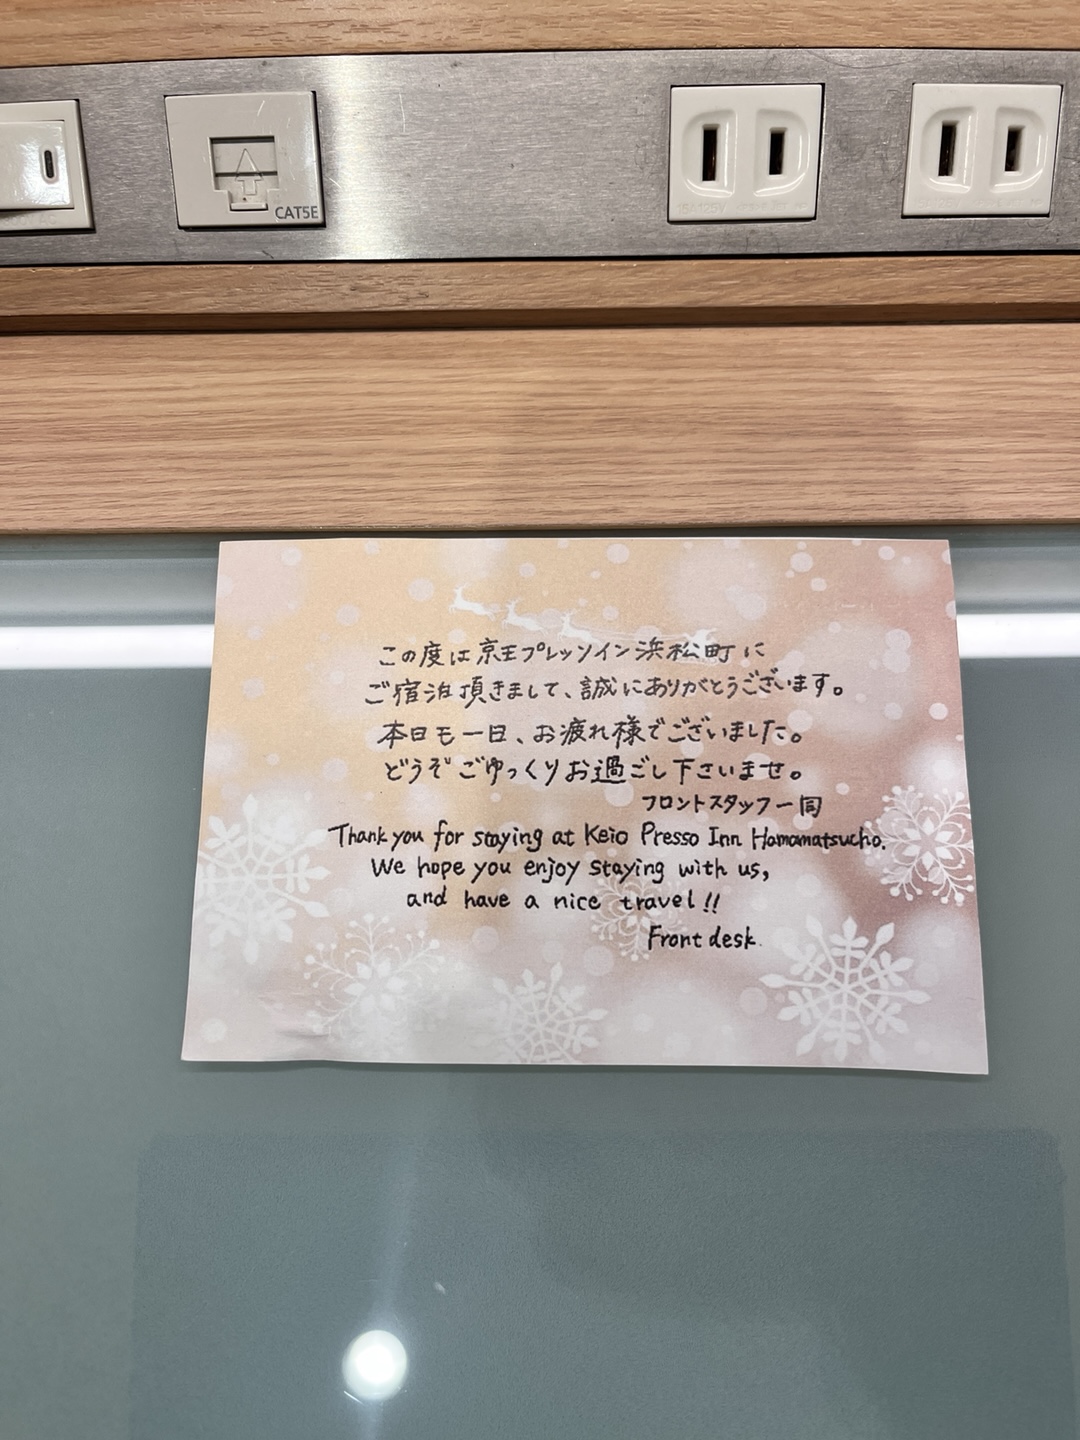 CAT5E
この度は京王プレッソイン浜松町に
ご宿泊頂きまして、誠にありがとうございます。
本日も一日、お疲れ様でございました。
どうぞごゆっくりお過ごし下さいませ。
フロントスタッフ一同
Thank you for staying at Keio Presso Inn Hamamatsucho.
We hope you enjoy staying with us,
and have a nice travel!!
Front desk.